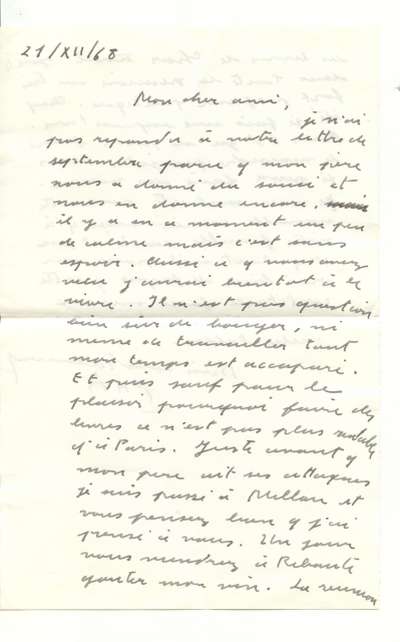 21/XII/68
Mon cher ami,
je n'ai
pas repondu à votre lettre de
septembre parce q mon père
nous a donné du souci et
nous en donne encore.
il y a en ce moment un peu
de calme mais c'est sans
espoir. Aussi ce q vous avez
vécu j'aurai bientot à le
vivre. Il n'est pas question
bien sûr de bouger, ni
meme de travailler tout
mon temps est accaparé.
Et puis sauf pour le
plaisir pourquoi faire des
livres ce n'est pas plus
q'à Paris. Juste avant q
mon père ait ses attaques
je suis passé à Millau et
vous pensez bien q j'ai
pensé à vous. Un jour
vous viendrez à Ribaute
gouter mon vin. La reunion